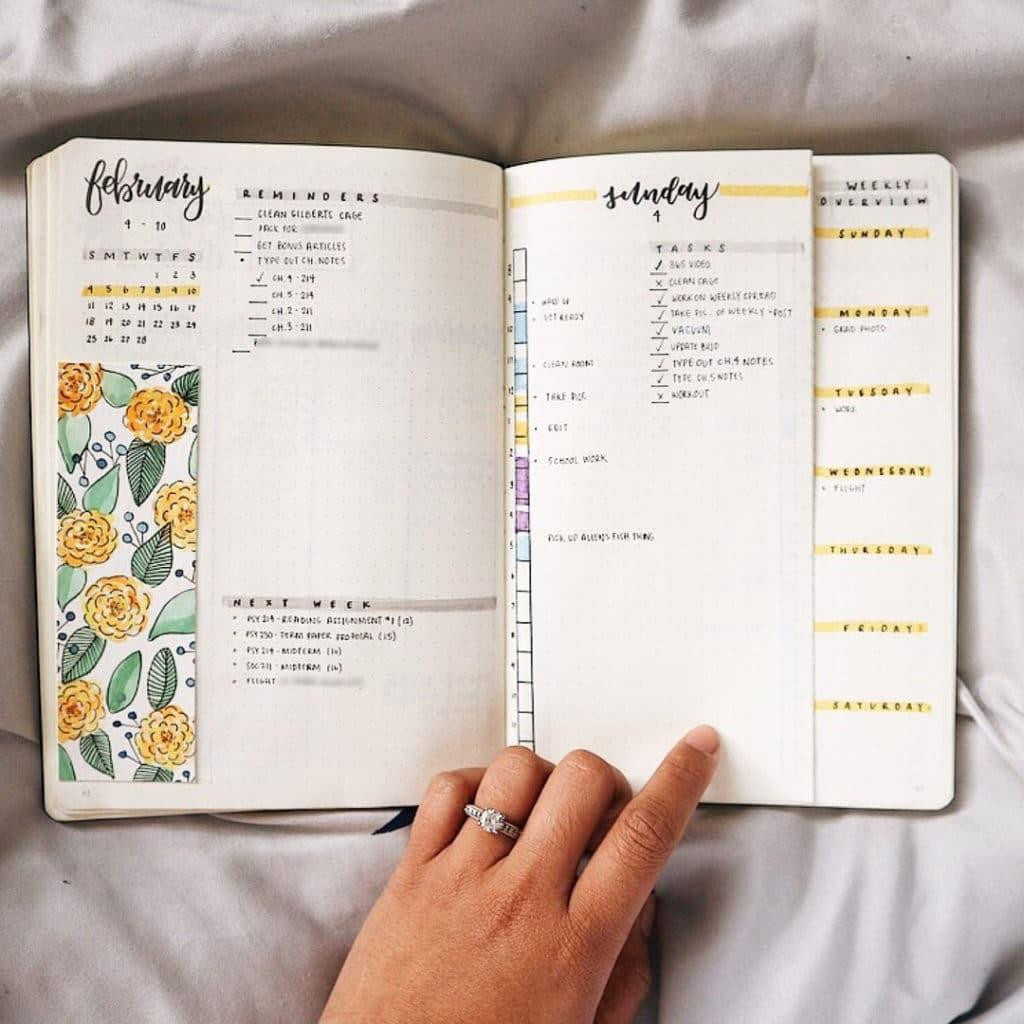 february
4 - 10
S M T W T F S
1 2 3
4 5 6 7 8 9 10
11 12 13 14 15 16 17
18 19 20 21 22 23 24
25 26 27 28
REMINDERS
CLEAN GILBERTS CAGE
PACK FOR
GET BONUS ARTICLES
• TYPE OUT CH. NOTES
✓ CH. 4 - 214
CH. 5 - 214
CH. 2 - 211
CH. 3 - 211
NEXT WEEK
• PSY 214 - READING ASSIGNMENT #1 (12)
• PSY 230 - TERM PAPER PROPOSAL (15)
• PSY 214 - MIDTERM (16)
• SOC 211 - MIDTERM (16)
• FLIGHT
sunday
4
8
9
10
11
12
1
2
3
4
5
6
7
8
9
10
11
• WAKE UP
• GET READY
• CLEAN ROOM
• TAKE PIC
• EDIT
• SCHOOL WORK
PICK UP ALLENS FISH THING
TASKS
✓ 365 VIDEO
x CLEAN CAGE
✓ WORK ON WEEKLY SPREAD
✓ TAKE PIC. OF WEEKLY + POST
✓ VACUUM
✓ UPDATE BUJO
✓ TYPE OUT CH.4 NOTES
✓ TYPE CH.5 NOTES
x WORKOUT
WEEKLY
OVERVIEW
SUNDAY
MONDAY
• GRAD PHOTO
TUESDAY
• WORK
WEDNESDAY
• FLIGHT
THURSDAY
FRIDAY
SATURDAY